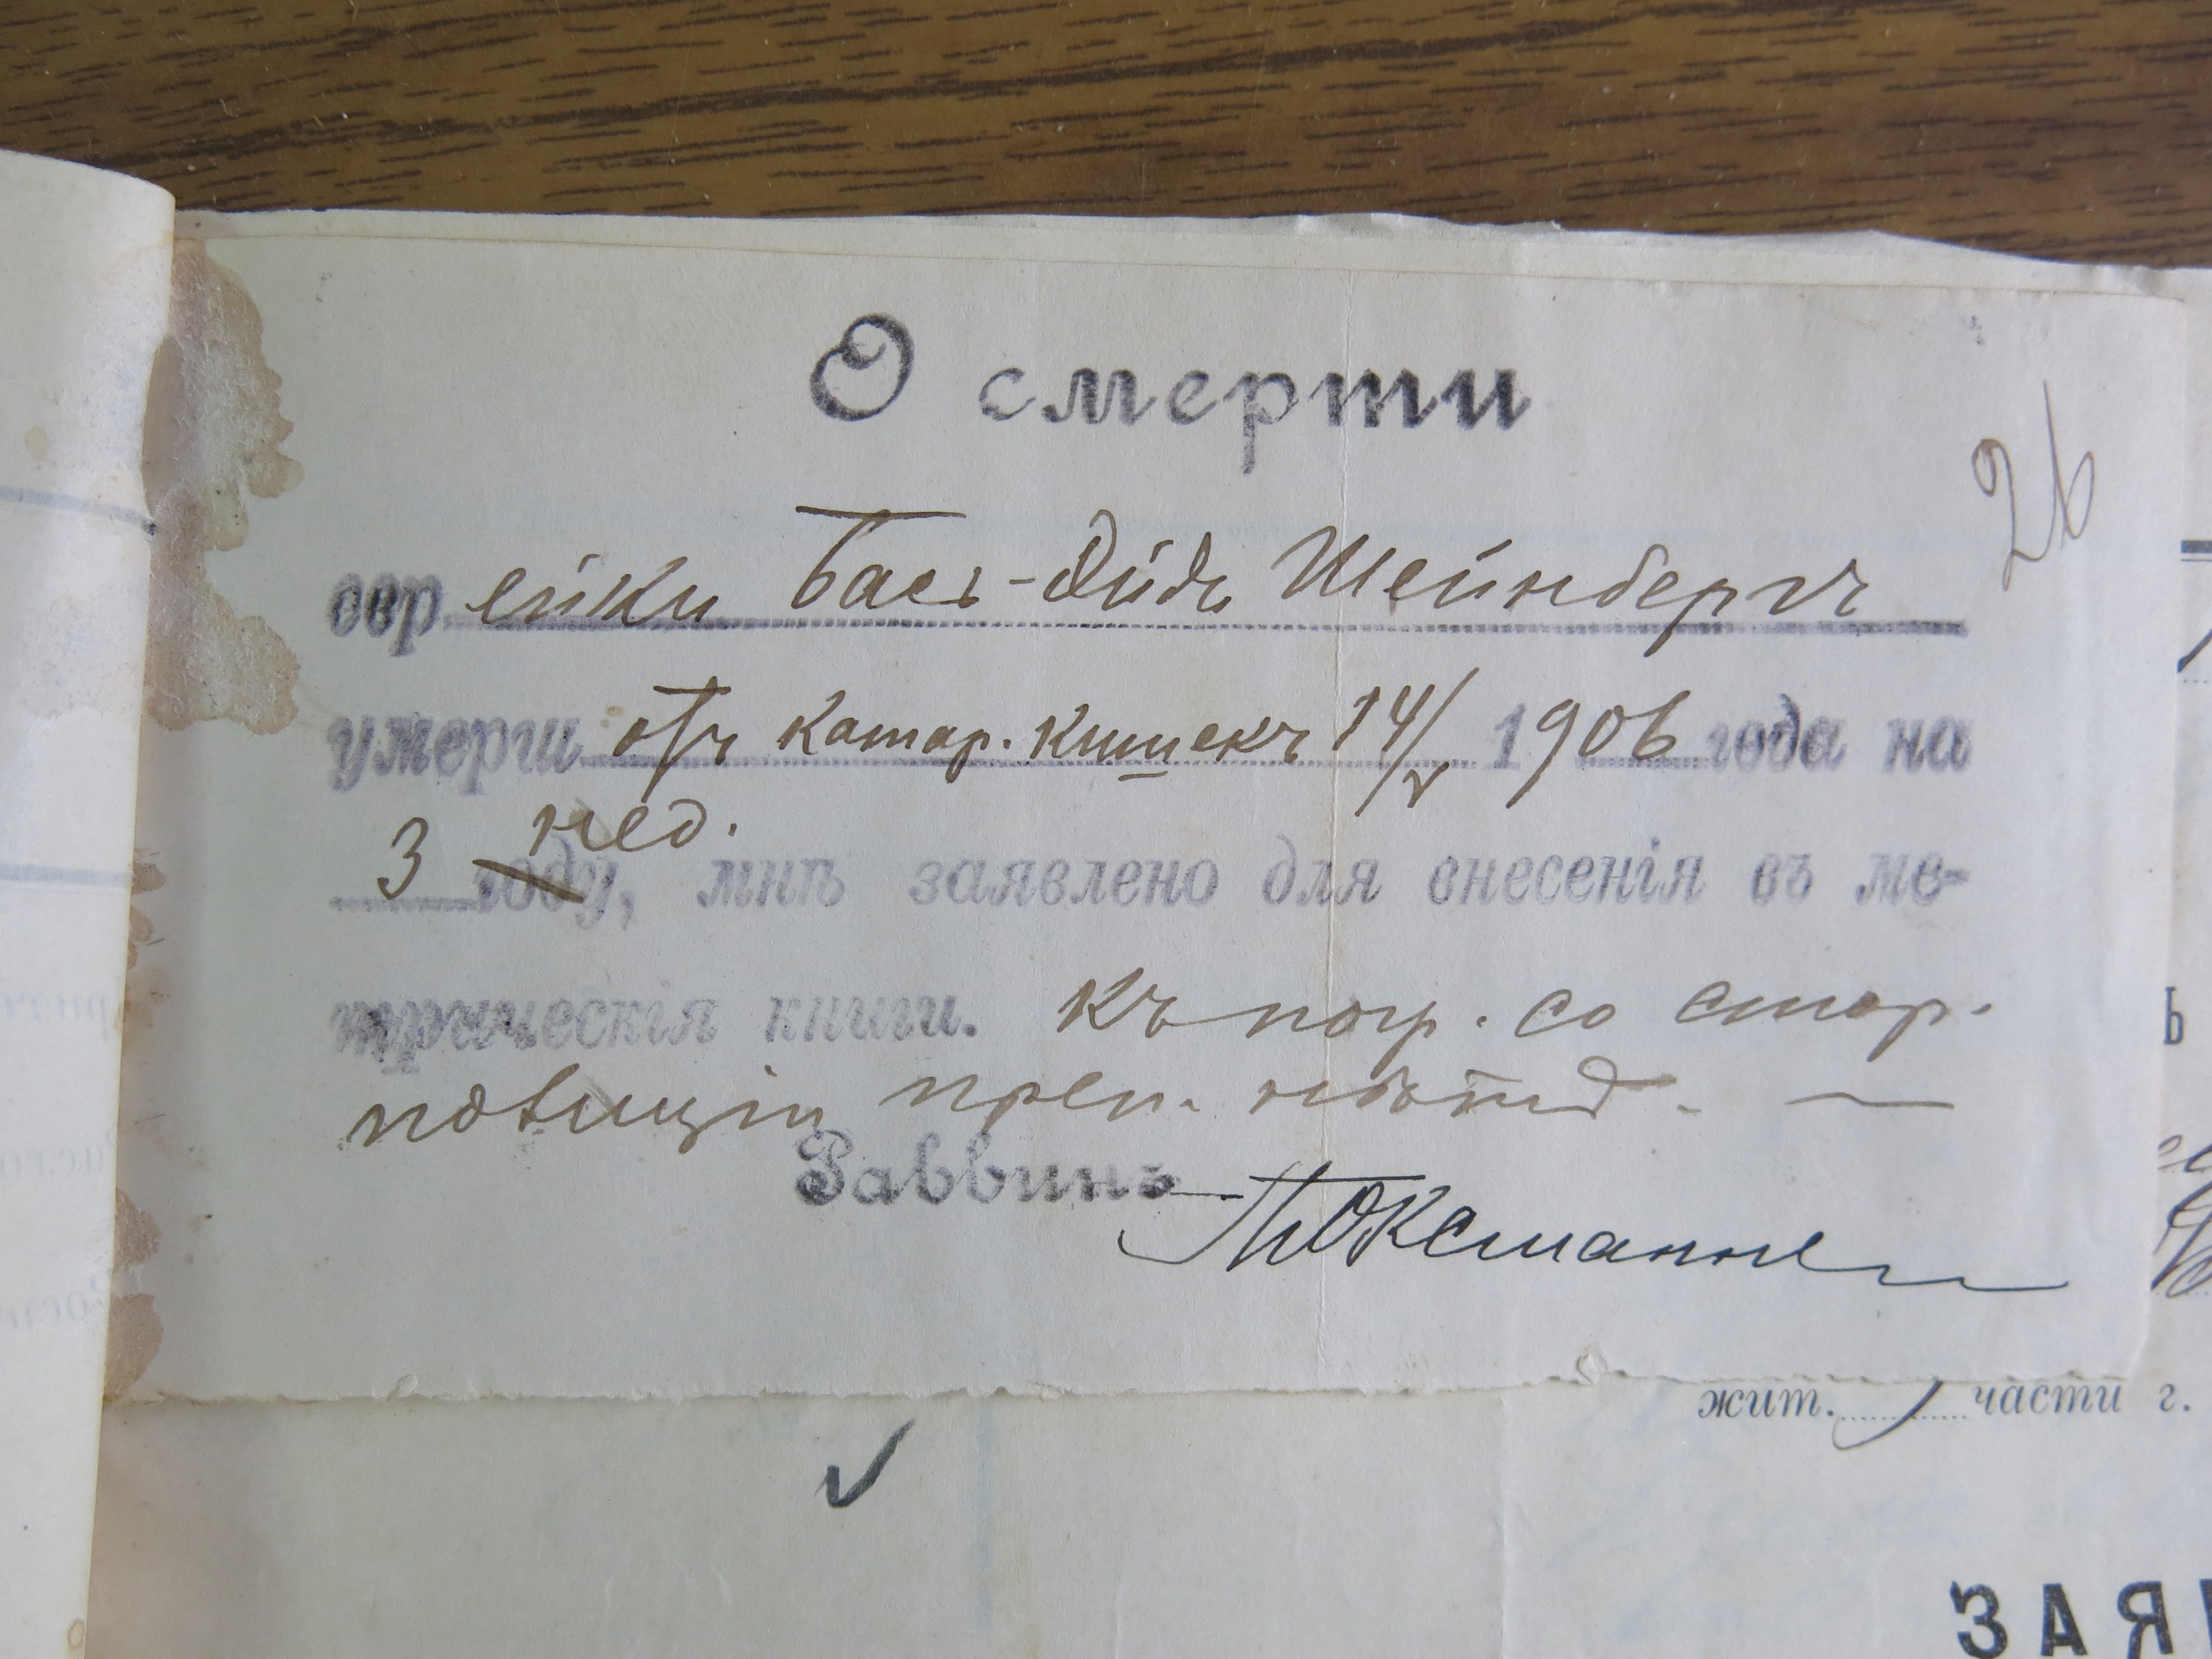 О смерти
26
еврейки Бася-Фйдь Шейнбергъ
умерш отъ катар. кишекъ 14/V 1906 года на
3 нед. году, мнѣ заявлено для внесенія въ ме-
трическія книги. Къ погр. со стор.
полиціи преп. нѣтъ. —
Раввинъ
жит. части г.
ЗАЯ